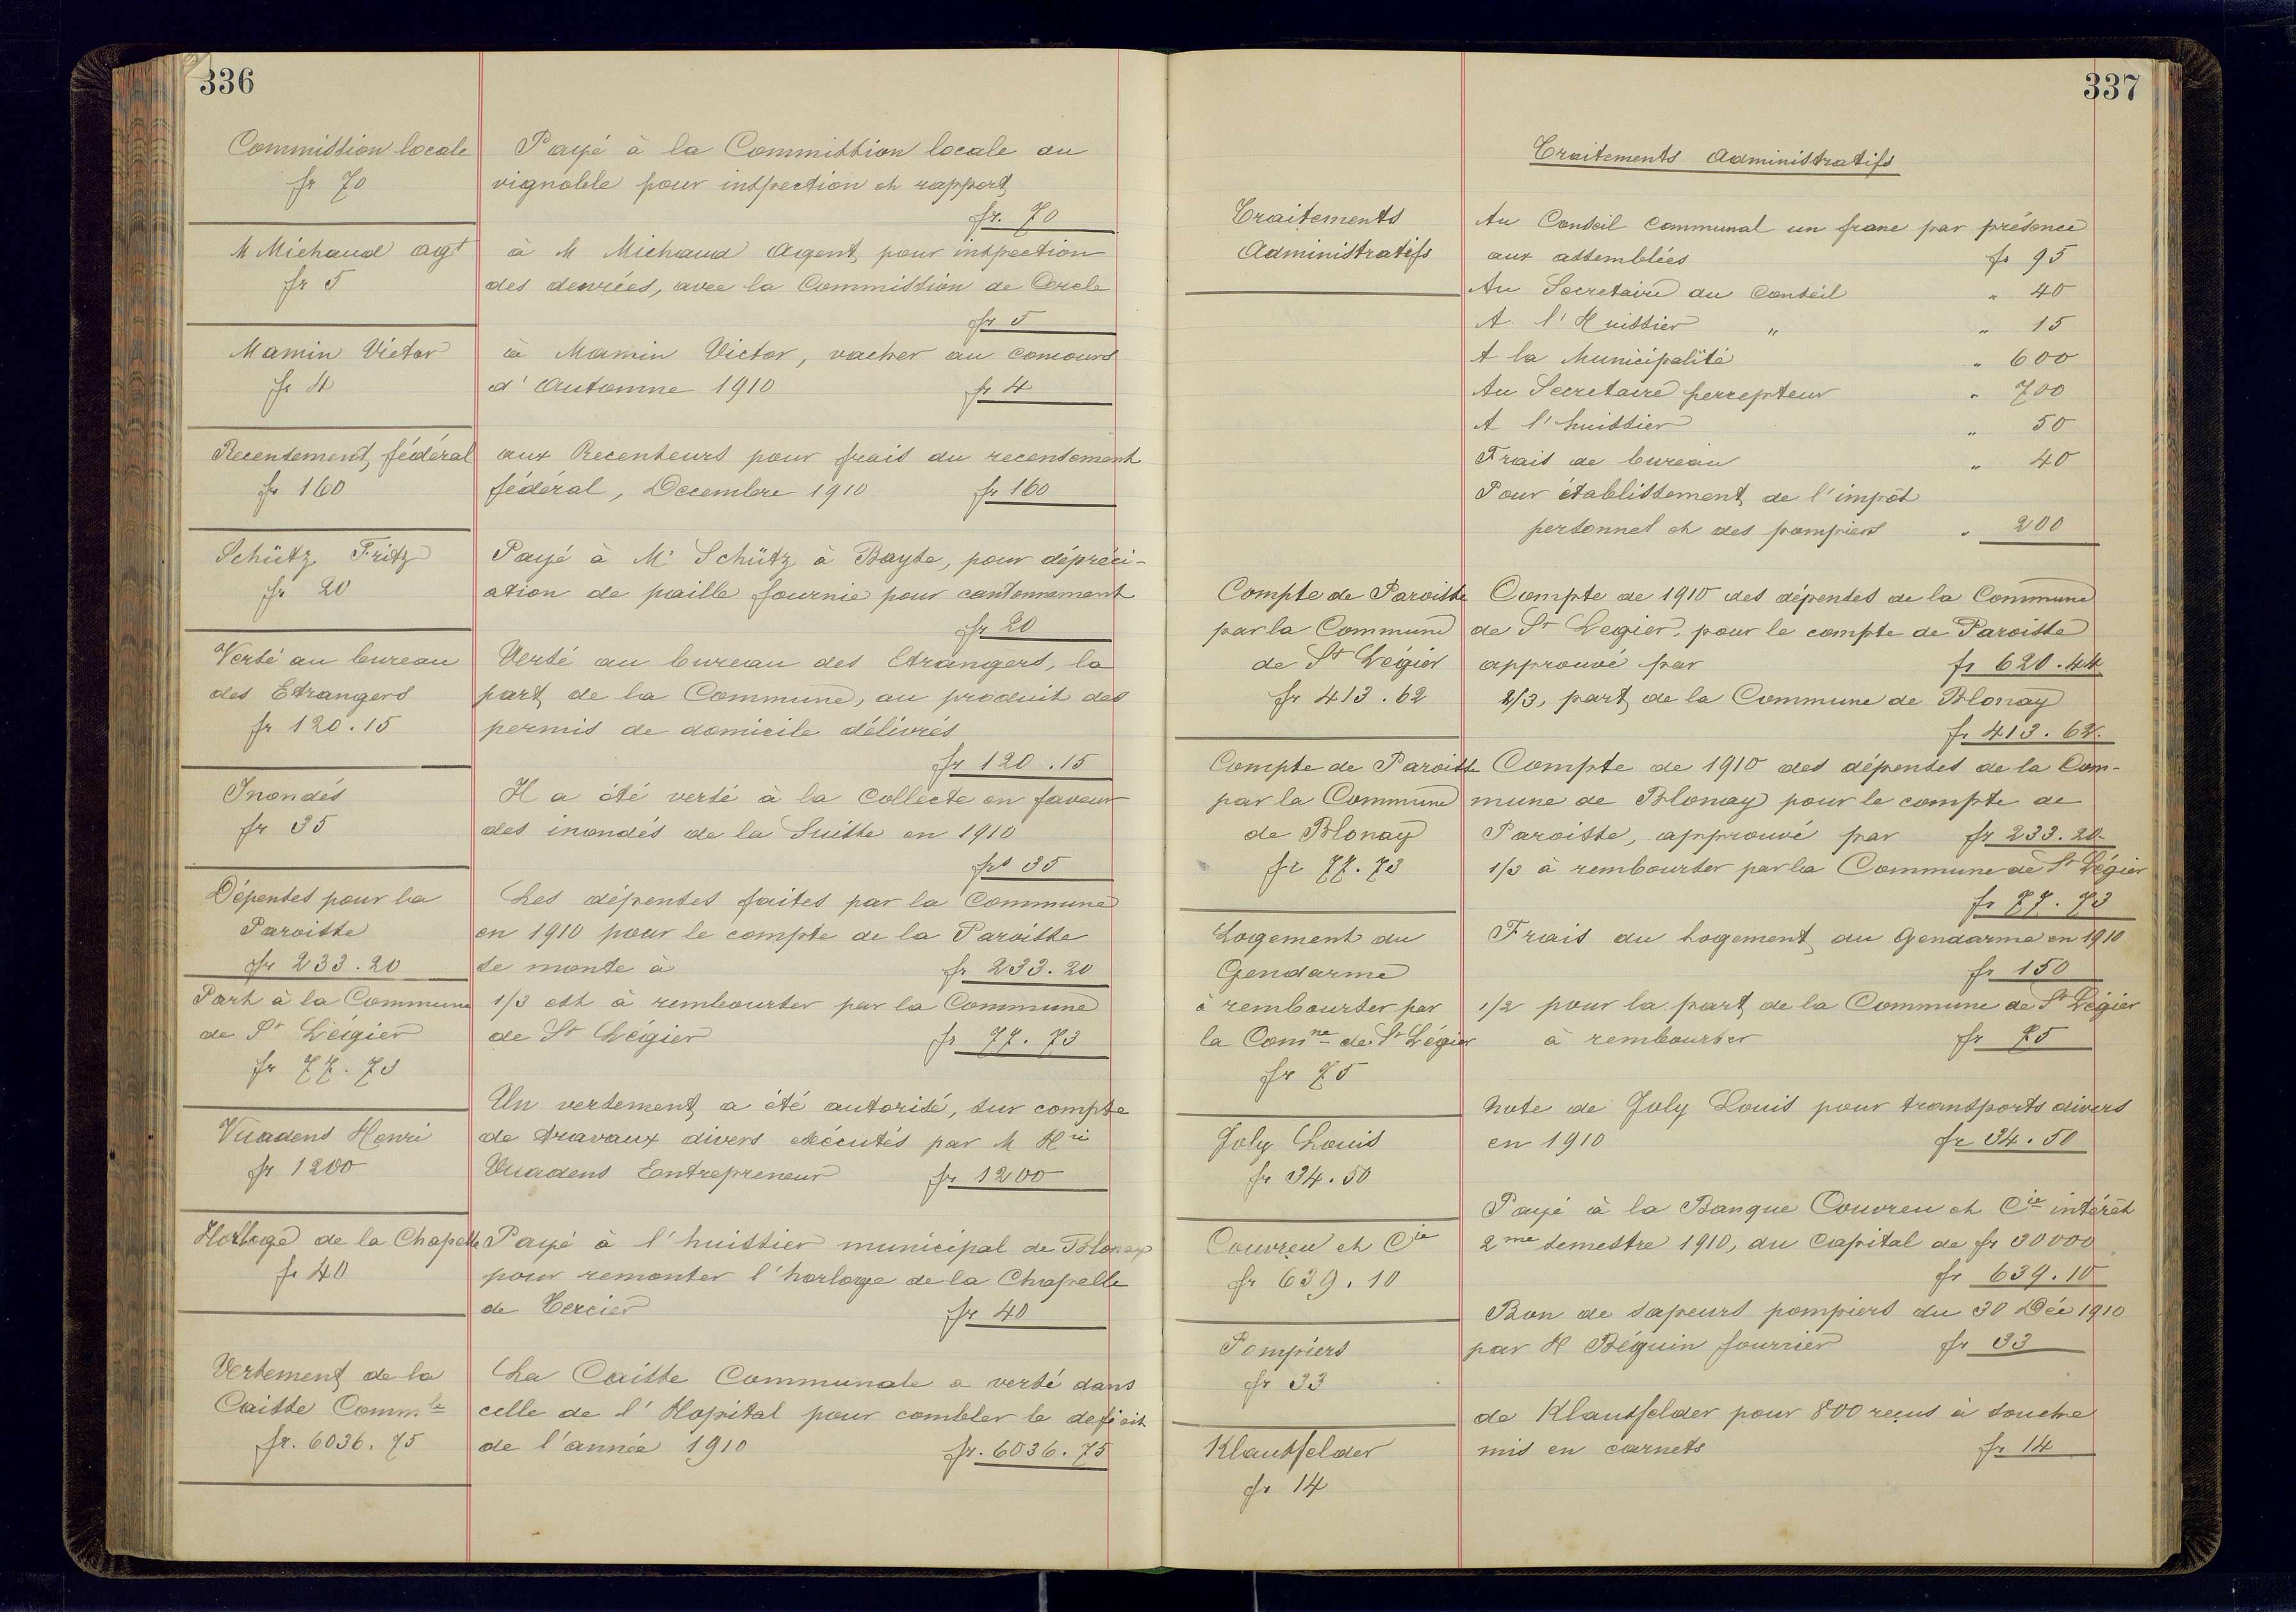 336
Commission locale
fr 70
Payé à la Commission locale du
vignoble pour inspection et rapport
fr. 70
M Michaud agt
fr 5
à M Michaud Agent pour inspection
des denrées, avec la Commission de Cercle
fr 5
Mamin Victor
fr 4
à Mamin Victor, vacher au concours
d'Automne 1910 fr 4
Recensement fédéral
fr 160
aux Recenseurs pour frais du recensement
fédéral, Decembre 1910 fr 160
Schütz Fritz
fr 20
Payé à Mr Schütz à Bayse, pour dépréci-
ation de paille fournie pour cantonnement
fr 20
Versé au bureau
des Etrangers
fr 120.15
Versé au bureau des Etrangers, la
part de la Commune, au produit des
permis de domicile délivrés
fr 120.15
Inondés
fr 35
Il a été versé à la Collecte en faveur
des inondés de la Suisse en 1910
frs 35
Dépenses pour la
Paroisse
fr 233.20
Les dépenses faites par la Commune
en 1910 pour le compte de la Paroisse
se monte à fr 233.20
Part à la Commune
de St Légier
fr 77.73
1/3 est à rembourser par la Commune
de St Légier fr 77.73
Vuadens Henri
fr 1200
Un versement a été autorisé, sur compte
de travaux divers exécutés par M Hri
Vuadens Entrepreneur fr 1200
Horloge de la Chapelle
fr 40
Payé à l'huissier municipal de Blonay
pour remonter l'horloge de la Chapelle
de Tercier fr 40
Versement de la
Caisse Comm.le
fr. 6036.75
La Caisse Communale a versé dans
celle de l'Hopital pour combler le deficit
de l'année 1910 fr. 6036.75
337
Traitements Administratifs
Traitements
Administratifs
Au Conseil Communal un franc par présence
aux assemblées fr 95
Au Secretaire du Conseil " 40
A l'Huissier " " 15
A la Municipalité " 600
Au Secretaire percepteur " 700
A l'huissier " 50
Frais de bureau " 40
Pour établissement de l'impôt
personnel et des pompiers " 200
Compte de Paroisse
par la Commune
de St Légier
fr 413.62
Compte de 1910 des dépenses de la Commune
de St Legier, pour le compte de Paroisse
approuvé par fr 620.44
2/3, part de la Commune de Blonay
fr 413.62.
Compte de Paroisse
par la Commune
de Blonay
fr 77.73
Compte de 1910 des dépenses de la Com-
mune de Blonay pour le compte de
Paroisse, approuvé par fr 233.20
1/3 à rembourser par la Commune de St Légier
fr 77.73
Logement du
Gendarme
à rembourser par
la Comne de St Légier
fr 75
Frais du logement du Gendarme en 1910
fr 150
1/2 pour la part de la Commune de St Légier
à rembourser fr 75
Joly Louis
fr 34.50
Note de Joly Louis pour transports divers
en 1910 fr 34.50
Couvreu et Cie
fr 639.10
Payé à la Banque Couvreu et Cie intérêt
2me semestre 1910, du Capital de fr 30000
fr 639.10
Pompiers
fr 33
Bon de sapeurs pompiers du 30 Déc 1910
par H Béguin fourrier fr 33
Klausfelder
fr 14
de Klausfelder pour 800 reçus à souche
mis en carnets fr 14